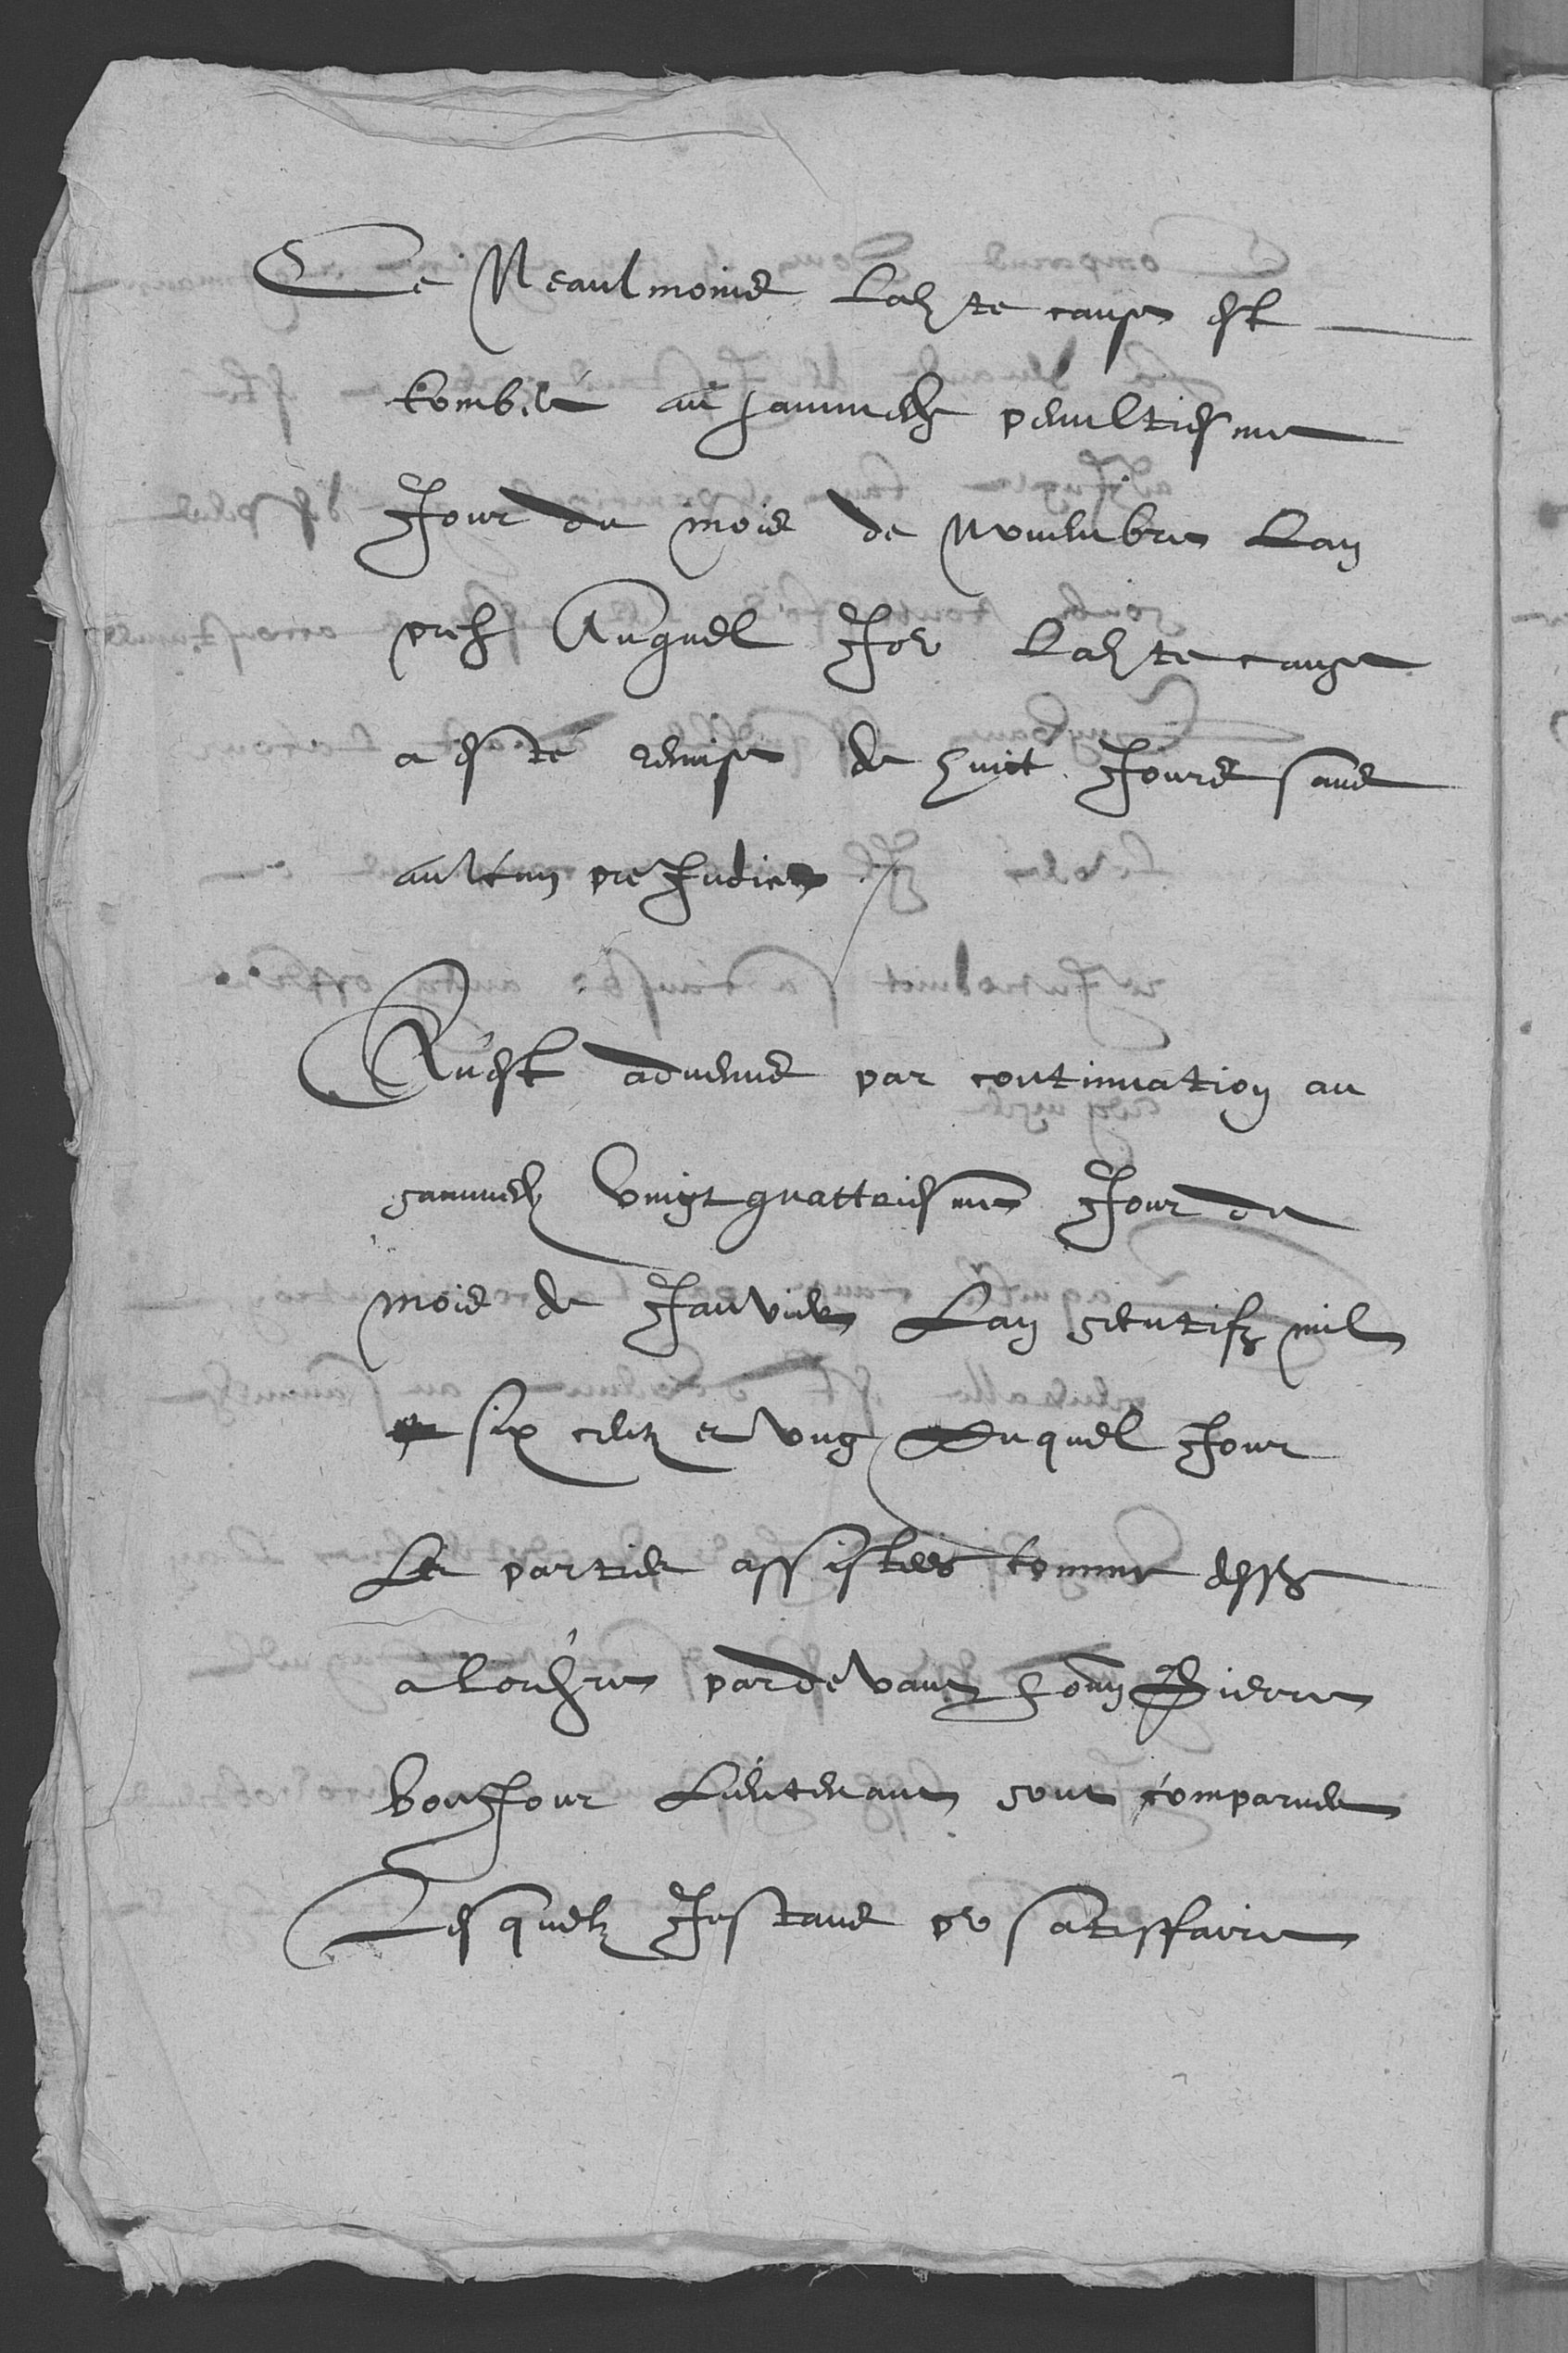 Ce Neaulmoins ladte cause est
tombée au sammedy penultiesme
Jour du mois de Novembre Lan
pnt Auquel Jor ladte cause
a esté remise de huict Jours sans
aulcun preJudice /
Qu'est advenus par continuation au
sammedy vingt quattriesme Jour du
mois de Janvier Lan secutifz mil
six centz et ung Auquel Jour
Les parties assistees comme dessus
a lordre pardevant honn Pierre
bonJour Lieutenant sont comparues
Lesquelz Instans pr satisffaire